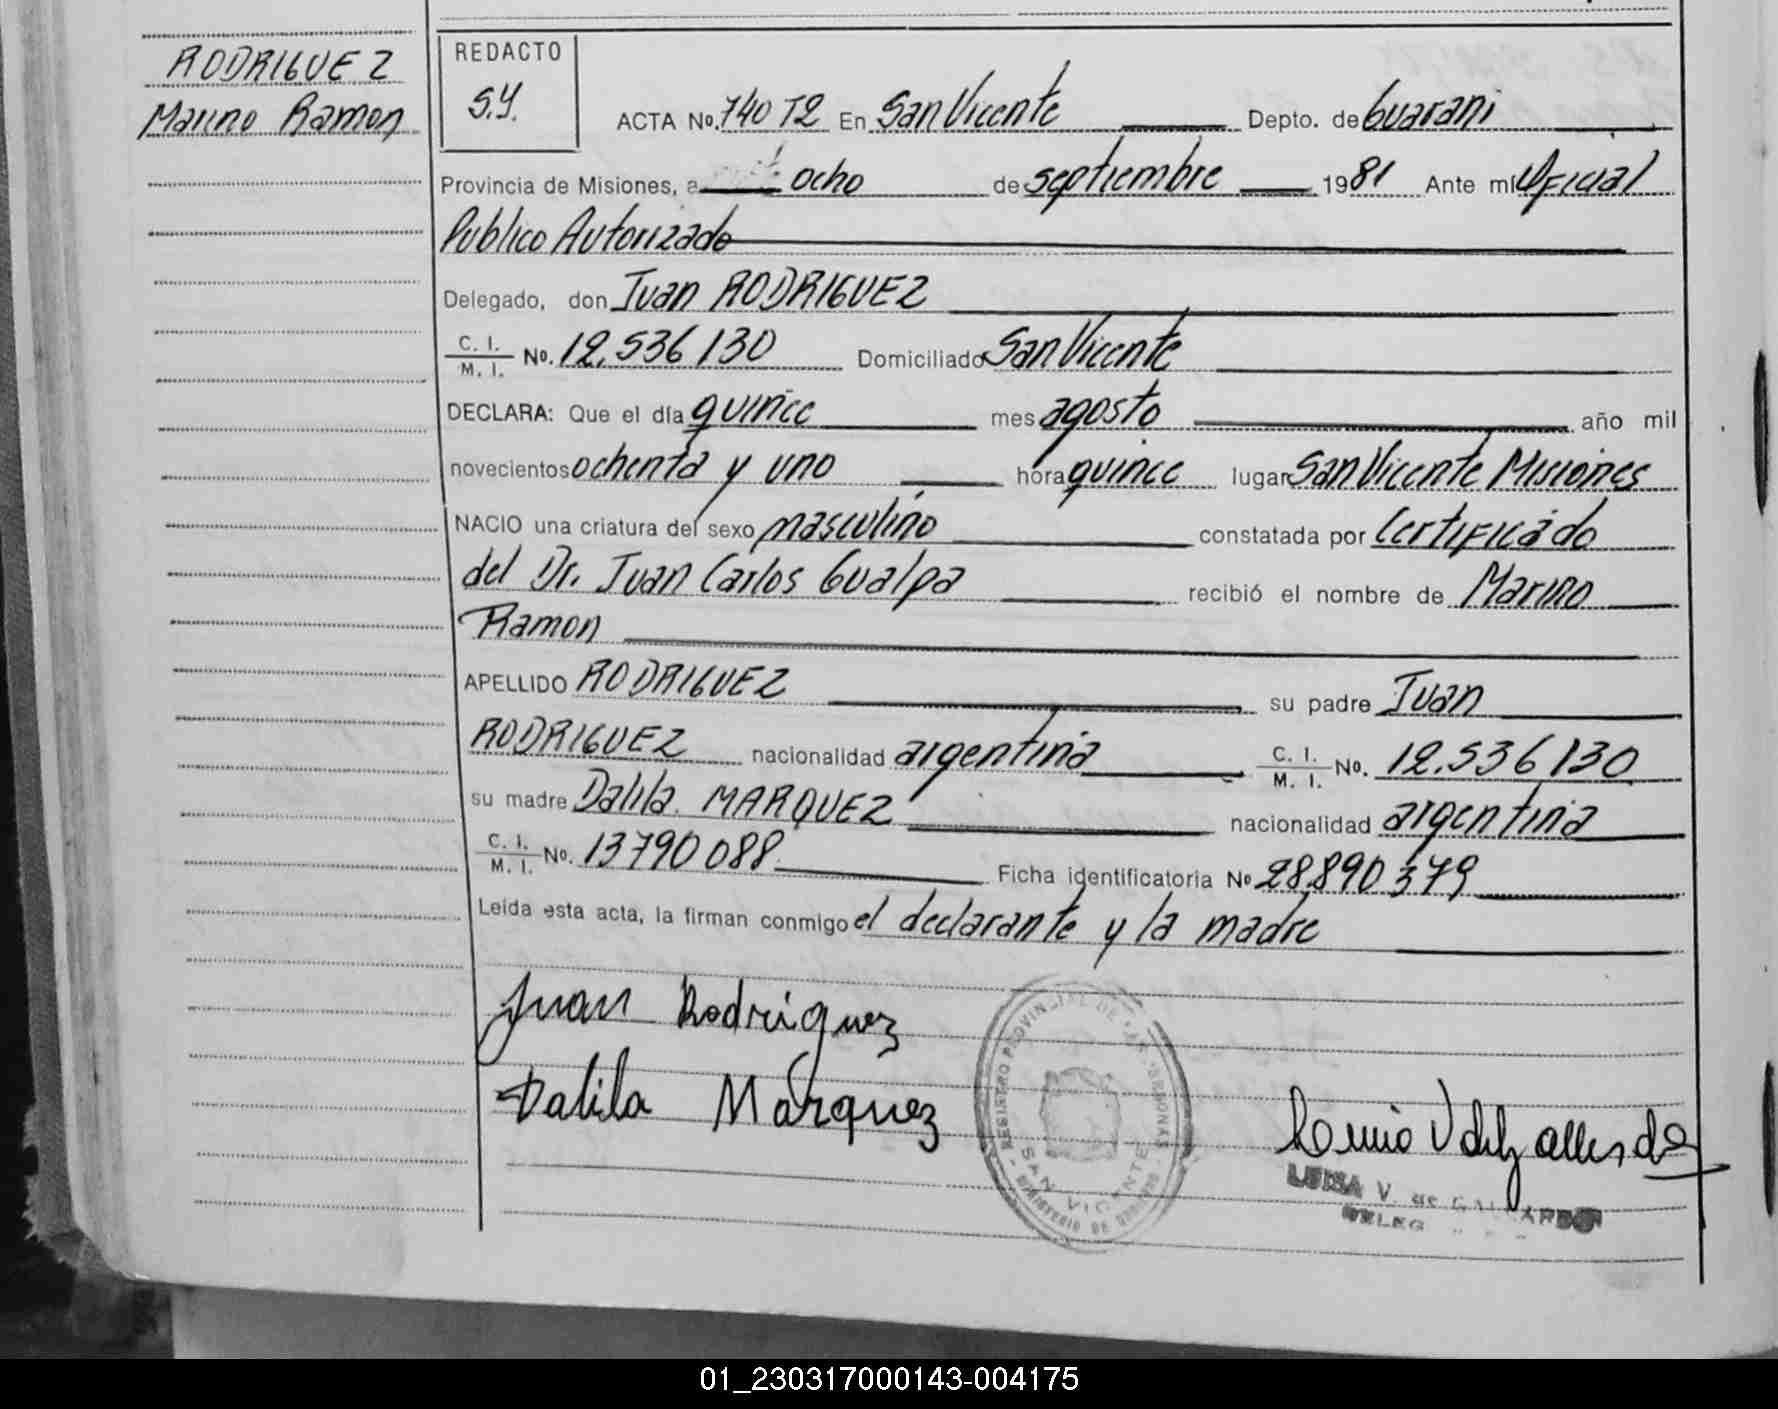 RODRIGUEZ
Marino Ramon
REDACTO
S.Y.
ACTA No. 740 T2 En San Vicente Depto. de Guarani
Provincia de Misiones, a ocho de septiembre 1981 Ante mí Oficial
Publico Autorizado
Delegado, don Juan RODRIGUEZ
C. I.
M. I. No. 12.536 130 Domiciliado San Vicente
DECLARA: Que el día quince mes agosto año mil
novecientos ochenta y uno hora quince lugar San Vicente Misiones
NACIO una criatura del sexo masculino constatada por certificado
del Dr. Juan Carlos Gualpa recibió el nombre de Marino
Ramon
APELLIDO RODRIGUEZ su padre Juan
RODRIGUEZ nacionalidad argentina C. I.
M. I. No. 12.536 130
su madre Dalila MARQUEZ nacionalidad argentina
C. I.
M. I. No. 13790 088 Ficha identificatoria No 28.890 379
Leída esta acta, la firman conmigo el declarante y la madre
Juan Rodriguez
Dalila Marquez
REGISTRO PROVINCIAL DE LAS PERSONAS
SAN VICENTE
MINISTERIO DE GOBIERNO
LUISA V. de GALLARDO
DELEG
01_230317000143-004175